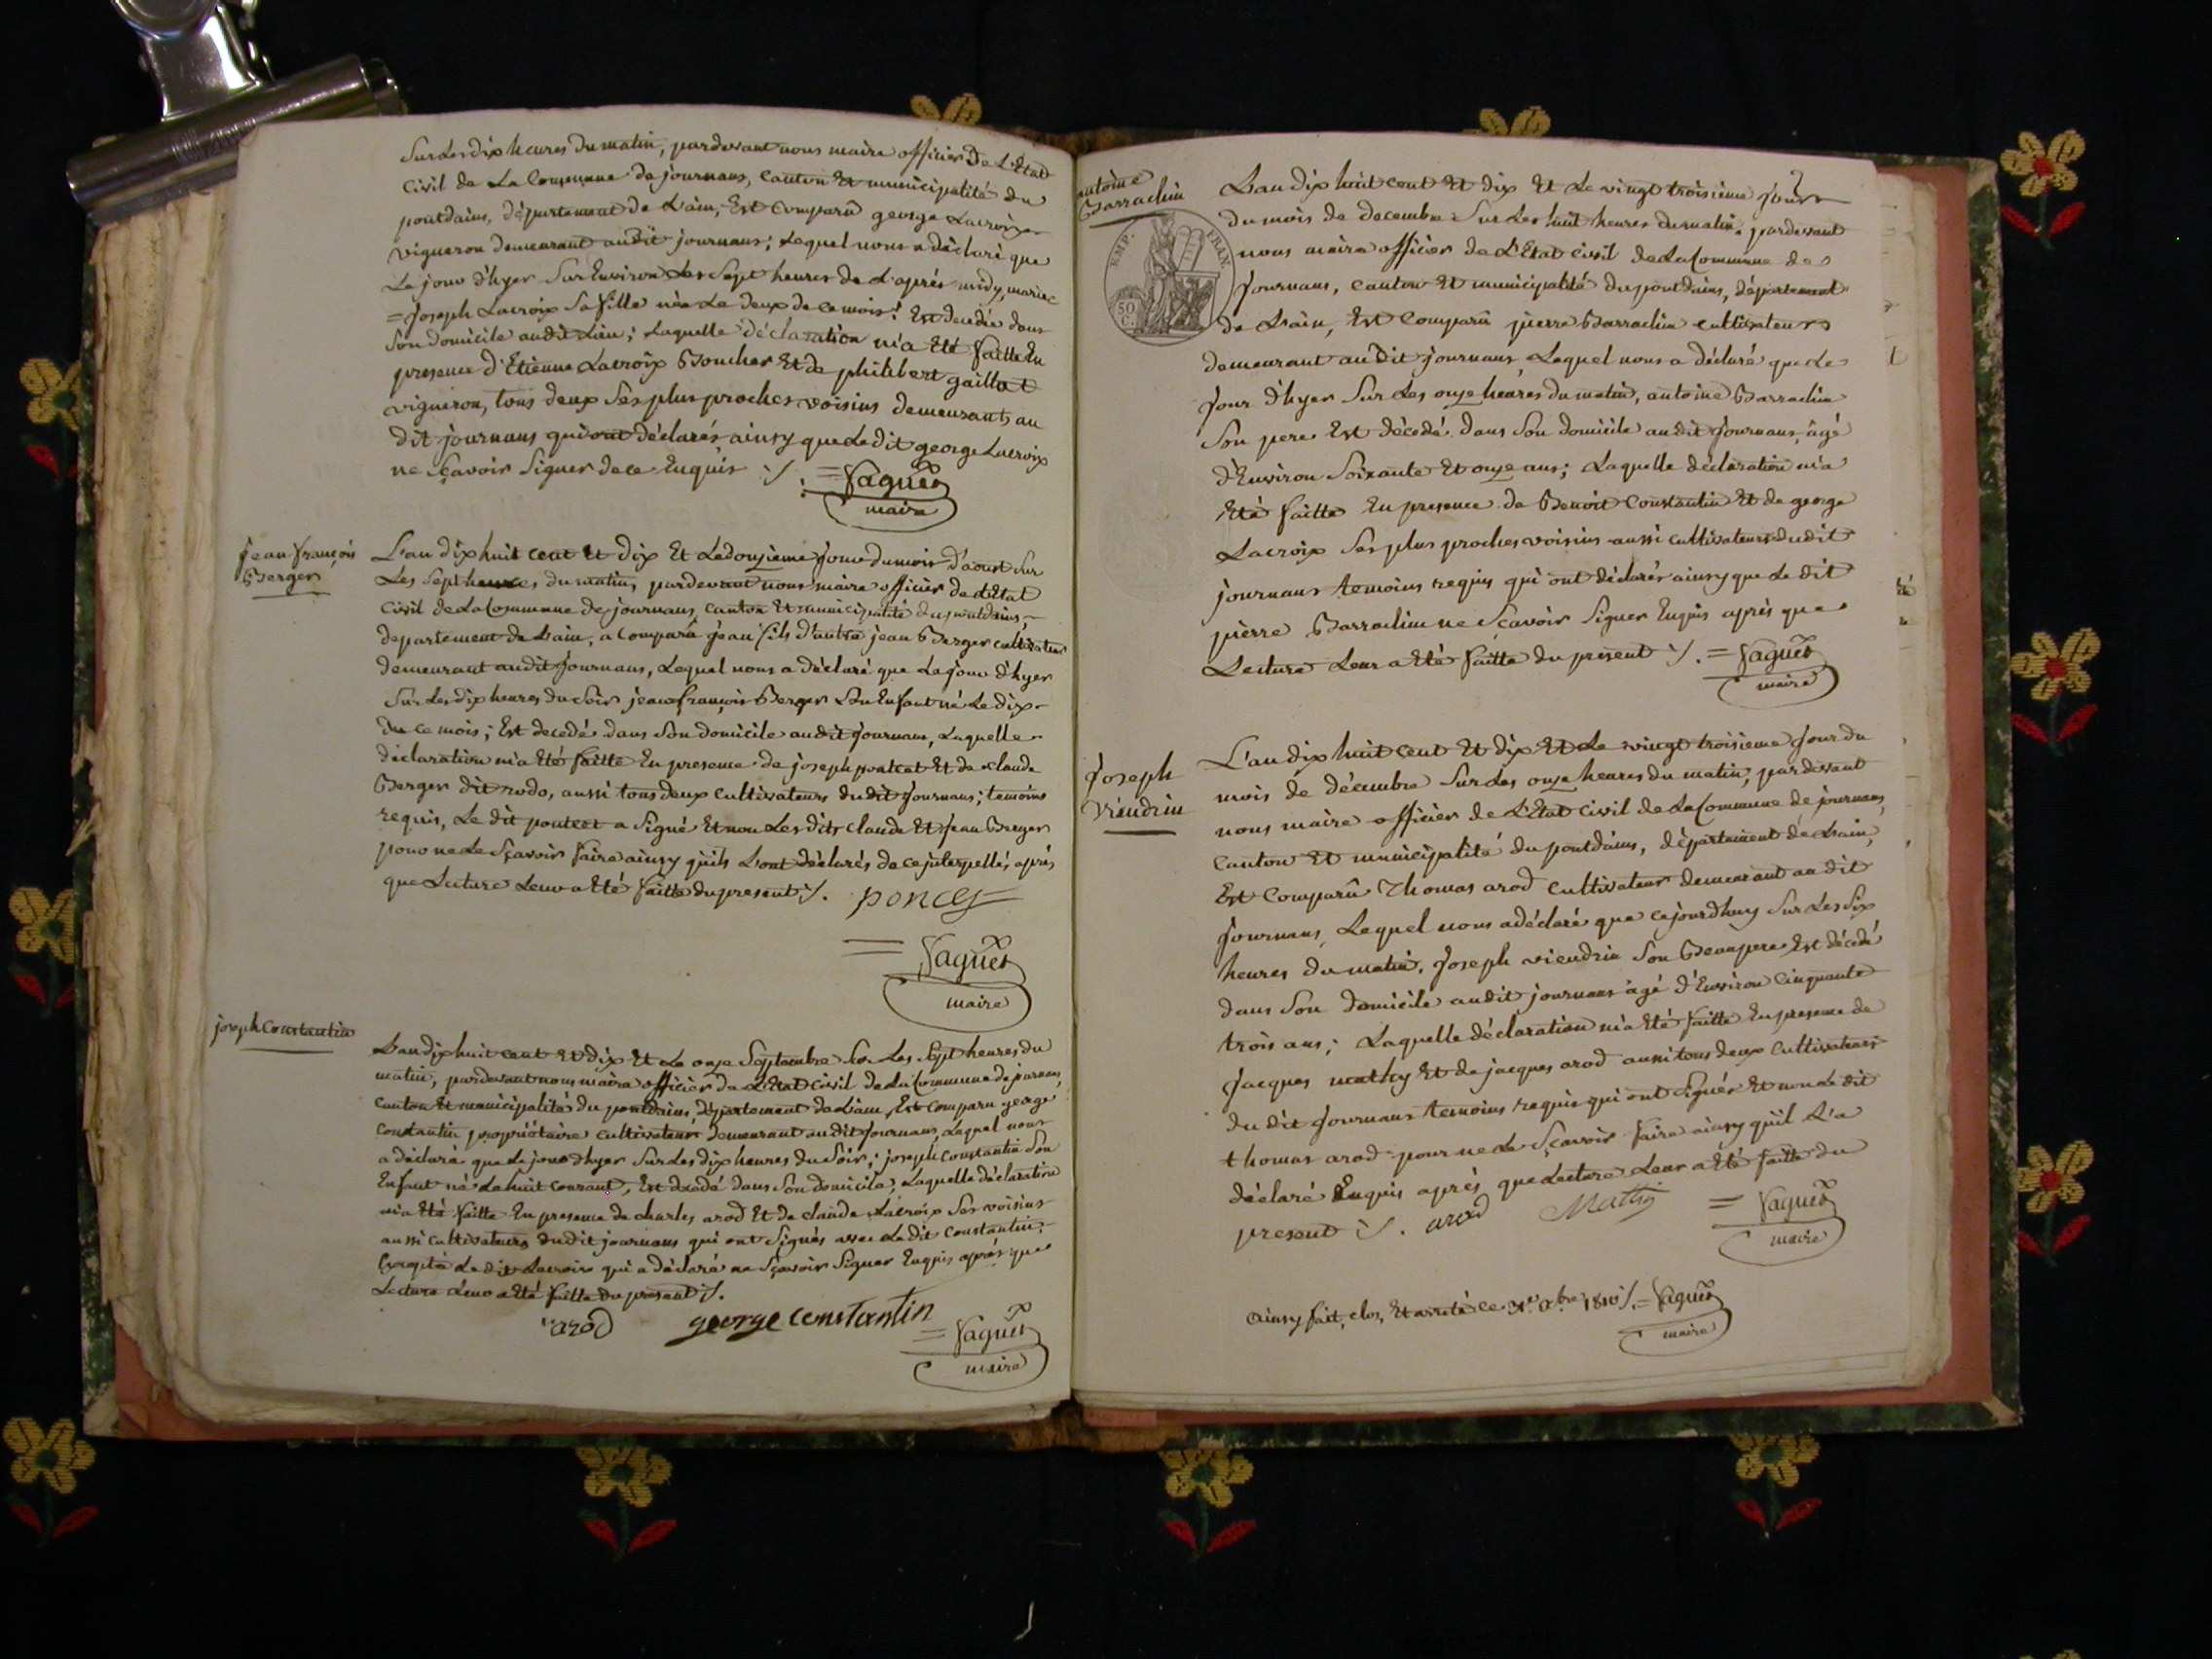 Sur Les dix heures du matin, pardevant nous maire officier De L'Etat
Civil de La Commune de journans, Canton Et municipalité du
pontdains, département de L'ain, Est Comparû george Lacroix
vigneron demeurant audit journans; Lequel nous a déclaré que
Le jour d'hyer Sur Environ Les Sept heures de L'après midy, marie
=Joseph Lacroix Sa fille née Le deux de ce mois! Est decedée dans
Son domicile audit Lieu; Laquelle déclaration m'a Eté faitte En
presence d'Etienne Lacroix Boucher Et de philibert gaillat
vigneron, tous deux Ses plus proches voisins demeurants au
dit journans qui ont déclarés ainsy que Le dit george Lacroix
ne Sçavoir Signer de ce Enquis ./. =Vaguet
maire
Jean françois
Berger
L'an dix huit cent Et dix Et Le douzieme Jour du mois d'aoust Sur
Les Sept heures du matin, pardevant nous maire officier de L'Etat
Civil de La Commune de journans, canton Et municipalité du pontdains,
departement de L'ain, a Comparû jean fils d'autre jean Berger cultivateur
demeurant audit Journans, Lequel nous a déclaré que Le jour d'hyer
Sur Les dix heures du Soir jean françois Berger Son Enfant né Le dix
du ce mois; Est decedé dans Son domicile audit Journans, Laquelle
déclaration m'a Eté faitte En presence de joseph pontcet Et de claude
Berger dit rodo, aussi tous deux Cultivateurs dudit Journans; temoins
requis, Le dit pontcet a Signé Et non Les dits Claude Et Jean Berger
pour ne Le Sçavoir faire ainsy qu'ils L'ont déclarés de ce interpellés, après
que Lecture Leur a Eté faitte du present ./. poncet
= Vaguet
maire
joseph Constantin
L'an dix huit cent Et dix Et Le onze Septembre Sur Les Sept heures du
matin, pardevant nous maire officier de L'Etat Civil de La Commune de journans,
Canton Et municipalité du pontdains, département de L'ain, Est Comparu george
Constantin propriétaire Cultivateur demeurant audit Journans, Lequel nous
a déclaré que Le jour d'hyer Sur Les dix heures du Soir; joseph Constantin Son
Enfant né Le huit courant, Est decedé dans Son domicile; Laquelle déclaration
m'a Eté faitte En presence de charles arod Et de claude Lacroix Ses voisins
aussi Cultivateurs dudit journans qui ont Signés avec Le dit Constantin;
Excepté Le dit Lacroix qui a déclaré ne Sçavoir Signer Enquis après que
Lecture Leur a Eté faitte du present ./.
arod george constantin
= Vaguet
maire
antoine
Barrachin
EMP. FRAN.
50
C.
L'an dix huit cent Et dix Et Le vingt troisieme Jour
du mois de decembre Sur Les huit heures du matin, pardevant
nous maire officier de L'Etat Civil de La Commune de
Journans, canton Et municipalité du pontdains, département
de L'ain, Est Comparû pierre Barrachin cultivateur
demeurant audit journans, Lequel nous a déclaré que Le
Jour d'hyer Sur Les onze heures du matin, antoine Barrachin
Son pere Est décedé dans Son domicile audit Journans, âgé
d'Environ Soixante Et onze ans; Laquelle déclaration m'a
Eté faitte En presence de Benoit Constantin Et de george
Lacroix Ses plus proches voisins aussi cultivateurs dudit
journans temoins requis qui ont déclarés ainsy que Le dit
pierre Barrachin ne Sçavoir Signer Enquis après que
Lecture Leur a Eté faitte du present ./. = Vaguet
maire
Joseph
Viendrin
L'an dix huit cent Et dix Et Le vingt troisieme Jour du
mois de décembre Sur Les onze heures du matin, pardevant
nous maire officier de L'Etat Civil de La Commune de journans,
Canton Et municipalité du pontdains, département de L'ain,
Est Comparû Thomas arod Cultivateur demeurant au dit
Journans, Lequel nous a déclaré que cejourdhuy Sur Les Six
heures du matin, Joseph viendrin Son Beaupere Est décedé
dans Son domicile audit journans âgé d'Environ Cinquante
trois ans; Laquelle déclaration m'a Eté faitte En presence de
Jacques mathy Et de jacques arod aussi tous deux Cultivateurs
du dit Journans temoins requis qui ont Signés Et non Le dit
thomas arod pour ne Le Sçavoir faire ainsy qu'il L'a
déclaré Enquis après que Lecture Leur a Eté faitte du
present ./. arod Mathy = Vaguet
maire
Ainsy fait, clos, Et arreté ce 31e Xbre 1810 ./. = Vaguet
maire